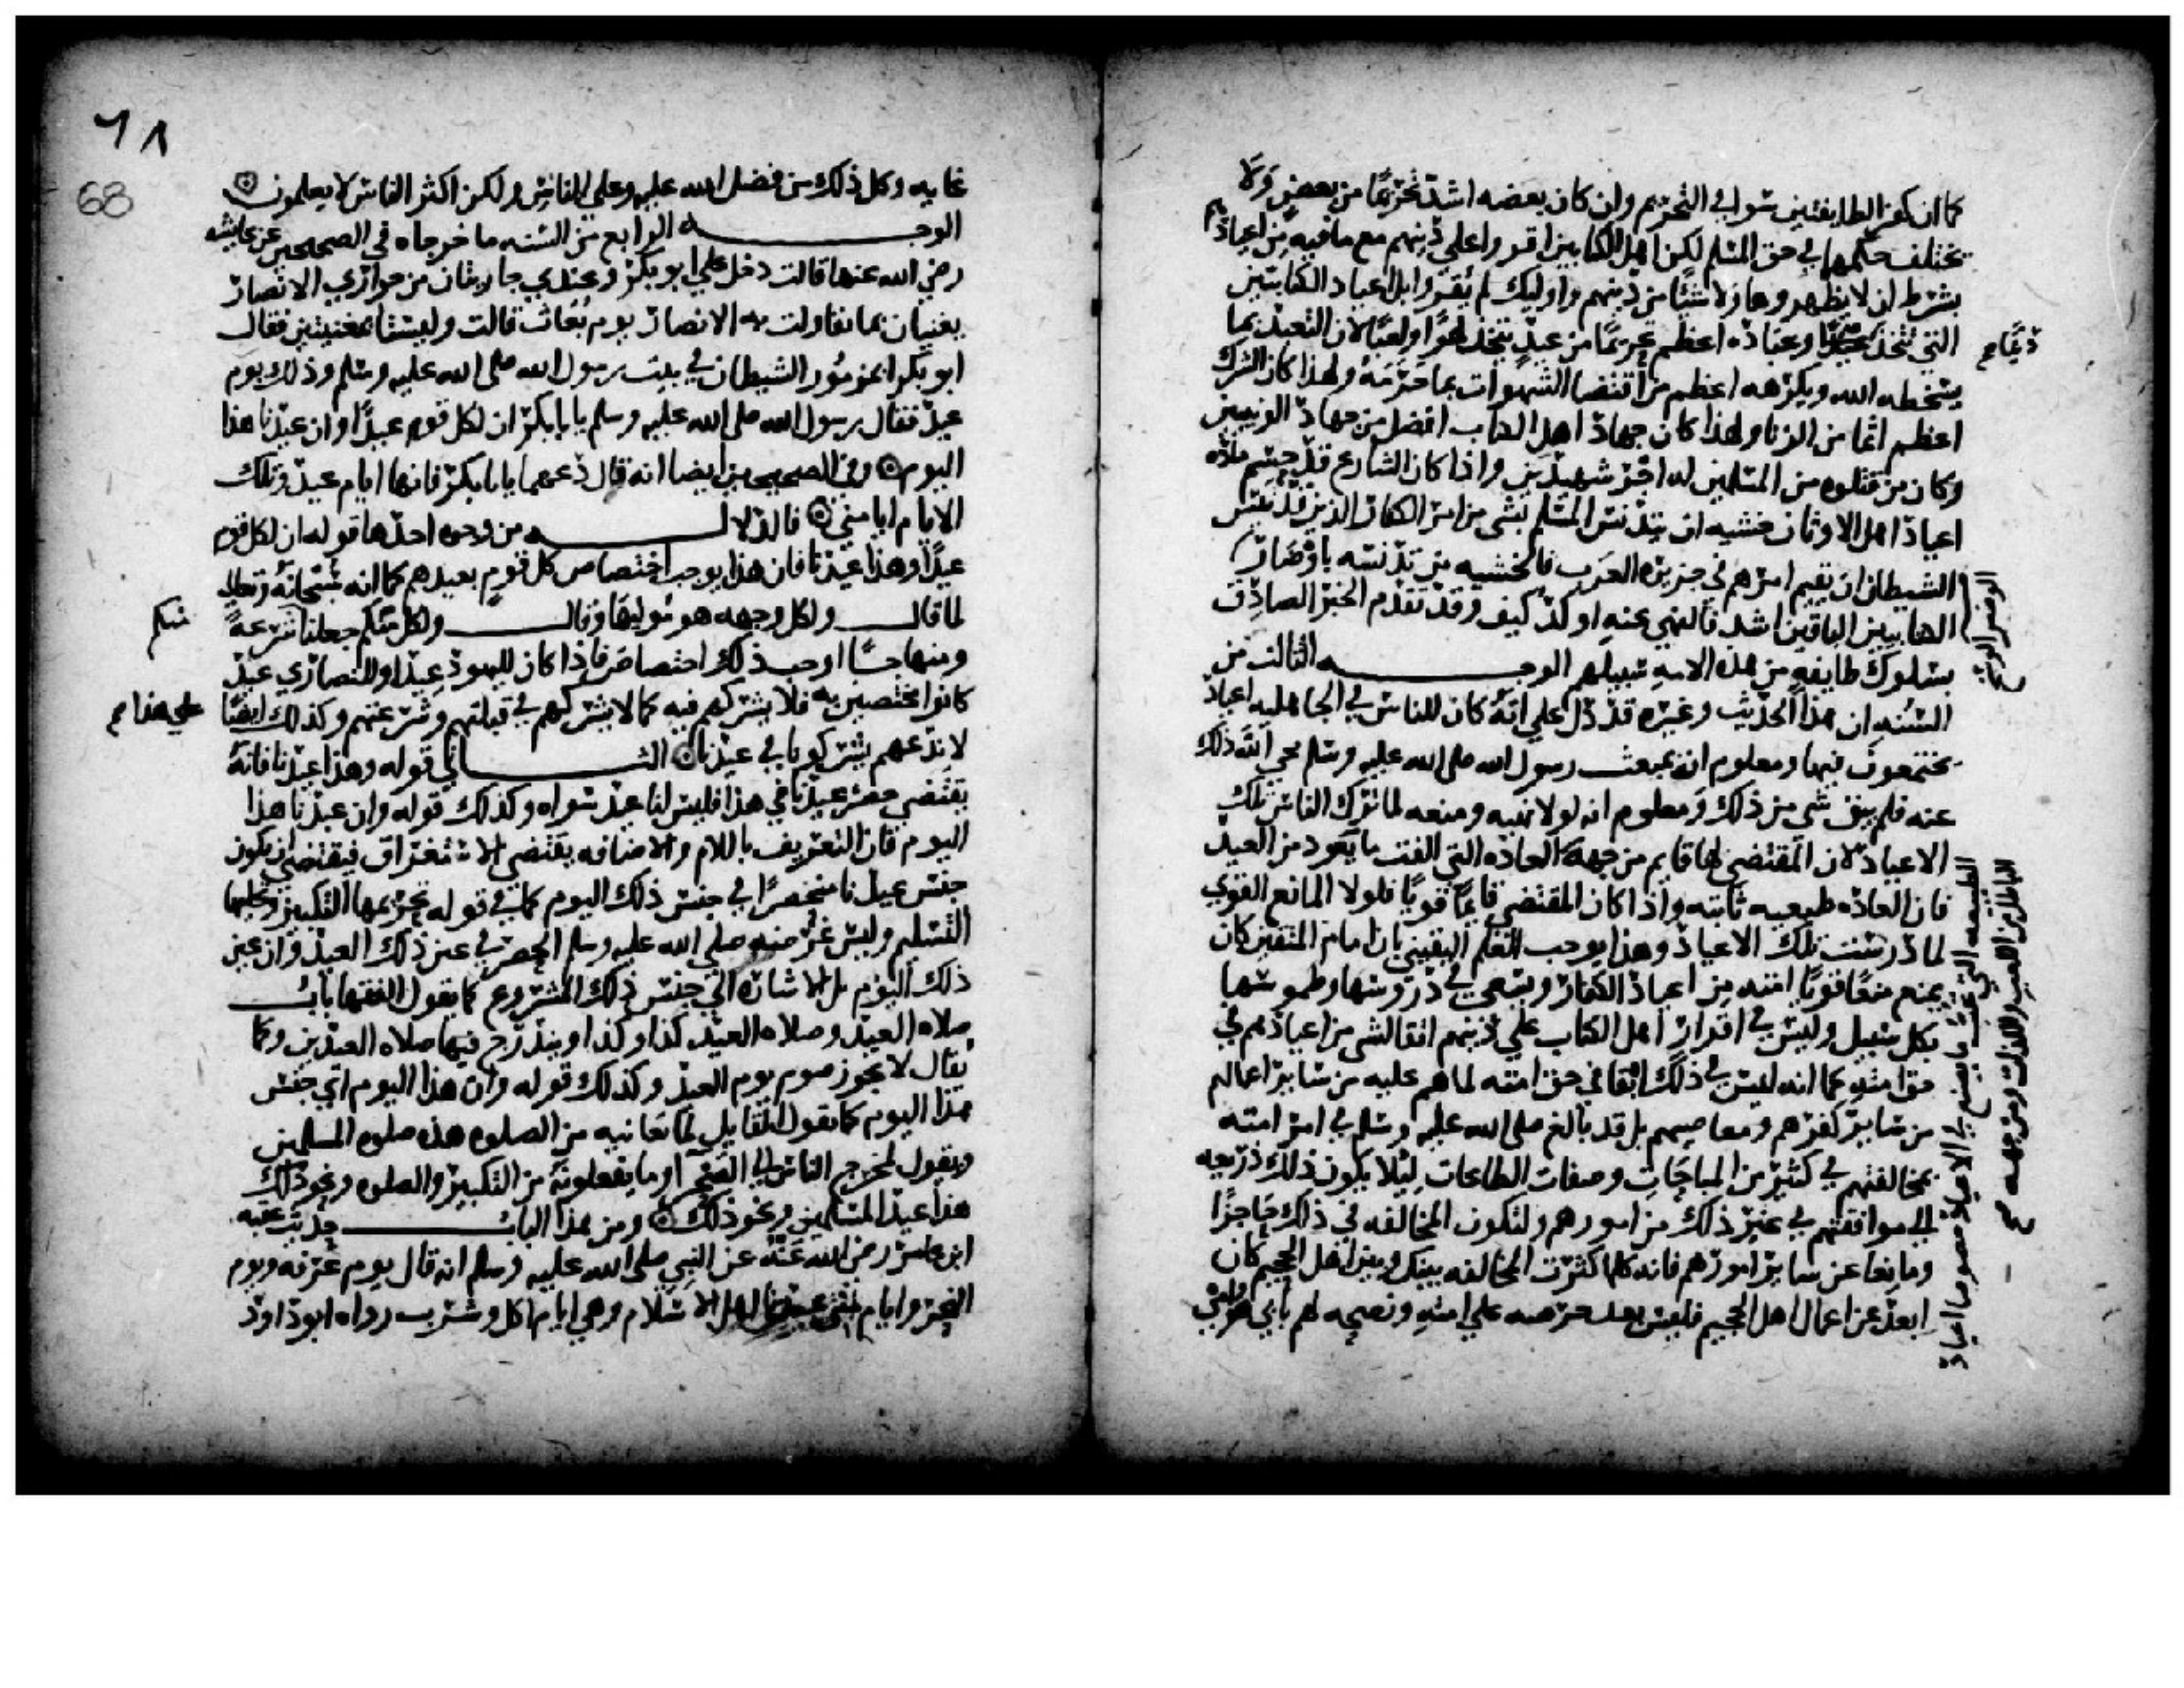 كما ان كفر الطايفتين سوا في التحريم وان كان بعضه اشد تحريما من بعض ولا
يختلف حكمها في حق المسلم لكن اهل الكتابين اقروا على دينهم مع ما فيه من اعيادهم
بشرط ان لا يظهروها ولا شيئا من دينهم واوليك لم يقروا بل اعياد الكتابيين
التي تتخذ دينا وعباده اعظم تحريما من عيد يتخذ لهوا ولعبا لان التعبد بما
دينا صح
يسخطه الله ويكرهه اعظم من اقتضا الشهوات بما حرمه ولهذا كان الشرك
اعظم اثما من الزنا ولهذا كان جهاد اهل الكتاب افضل من جهاد الوثنيين
وكان من قتلوه من المسلمين له اجر شهيدين واذا كان الشارع قد حسم ماده
اعياد اهل الاوثان خشيه ان يتدنس المسلم بشي من امر الكفار الذين قد يئس
الشيطان ان يقيم امرهم في جزيره العرب فالخشيه من تدنسه باوضار
الوضر الوسخ
الكتابيين الباقين اشد فالنهي عنه اوكد كيف وقد تقدم الخبر الصادق
بسلوك طايفه من هذه الامه سبيلهم الوجه الثالث من
السنه ان هذا الحديث وغيره قد دل على انه كان للناس في الجاهليه اعياد
يجتمعون فيها ومعلوم انه بمبعث رسول الله صلى الله عليه وسلم محى الله ذلك
عنه فلم يبق شي من ذلك ومعلوم انه لولا نهيه ومنعه لما ترك الناس تلك
الاعياد لان المقتضي لها قايم من جهه الطبيعه التي تحب ما يصنع في الاعياد خصوصا اعياد
الباطل من اللعب واللذات ومن جهه صح
العاده التي الفت ما يعود من العيد
فان العاده طبيعيه ثابته واذا كان المقتضي قايما قويا فلولا المانع القوي
لما درست تلك الاعياد وهذا يوجب العلم اليقيني بان امام المتقين كان
يمنع منعا قويا امته من اعياد الكفار ويسعى في دروسها وطموسها
بكل سبيل وليس في اقرار اهل الكتاب على دينهم ابقا لشي من اعيادهم في
حق امته كما انه ليس في ذلك ابقا في حق امته لما هم عليه من ساير اعمالهم
من ساير كفرهم ومعاصيهم بل قد بالغ صلى الله عليه وسلم في امر امته
بمخالفتهم في كثير من المباحات وصفات الطاعات ليلا يكون ذلك ذريعه
الى موافقتهم في غير ذلك من امورهم ولتكون المخالفه في ذلك حاجزا
ومانعا عن ساير امورهم فانه كلما كثرت المخالفه بينك وبين اهل الجحيم كان
ابعد عن اعمال اهل الجحيم فليس بعد حرصه على امته ونصحه لهم بابي هو وامي
٦٨
68
غايه وكل ذلك من فضل الله عليه وعلى الناس ولكن اكثر الناس لا يعلمون
الوجه الرابع من السنه ما خرجاه في الصحيحين عن عايشه
رضي الله عنها قالت دخل علي ابو بكر وعندي جاريتان من جواري الانصار
يغنيان بما تقاولت به الانصار يوم بعاث قالت وليستا بمغنيتين فقال
ابو بكر ابمزمور الشيطان في بيت رسول الله صلى الله عليه وسلم وذلك يوم
عيد فقال رسول الله صلى الله عليه وسلم يا بابكر ان لكل قوم عيدا وان عيدنا هذا
اليوم وفي الصحيحين ايضا انه قال دعهما يا بابكر فانها ايام عيد وتلك
الايام ايام منى فالدلاله من وجوه احدها قوله ان لكل قوم
عيدا وهذا عيدنا فان هذا يوجب اختصاص كل قوم بعيدهم كما انه سبحانه وتعالى
لما قال ولكل وجهه هو موليها وقال ولكل منكم جعلنا شرعة
منكم
ومنهاجا اوجب ذلك اختصاص فاذا كان لليهود عيدا وللنصارى عيد
كانوا مختصين به فلا يشركهم فيه كما لا يشركهم في قبلتهم وشرعتهم وكذلك ايضا
على هذا صح
لا ندعهم يشركونا في عيدنا الثاني قوله وهذا عيدنا فانه
يقتضي حصر عيدنا في هذا فليس لنا عيد سواه وكذلك قوله وان عيدنا هذا
اليوم فان التعريف باللام والاضافه يقتضي الاستغراق فيقتضي ان يكون
جنس عيدنا منحصرا في جنس ذلك اليوم كما في قوله تحريمها التكبير وتحليلها
التسليم وليس غرضه صلى الله عليه وسلم الحصر في عين ذلك العيد وان عين
ذلك اليوم بل الاشاره الى جنس ذلك المشروع كما يقول الفقها باب
صلاه العيد وصلاه العيد كذا وكذا ويندرج فيها صلاه العيدين وكما
يقال لا يجوز صوم يوم العيد وكذلك قوله وان هذا اليوم اي جنس
هذا اليوم كما يقول القايل لما يعانيه من الصلوه هذه صلوه المسلمين
ويقول لمخرج الناس الى الصحرا وما يفعلونه من التكبير والصلوه ونحو ذلك
هذا عيد المسلمين ونحو ذلك ومن هذا الباب حديث عقبه
ابن عامر رضي الله عنه عن النبي صلى الله عليه وسلم انه قال يوم عرفه ويوم
النحر وايام منى عيدنا اهل الاسلام وهي ايام اكل وشرب رواه ابو داود